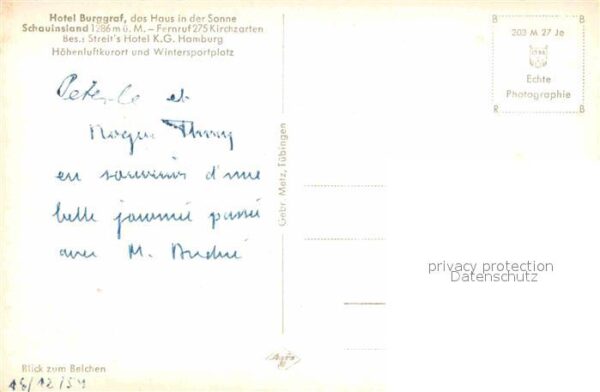 Hotel Burggraf, das Haus in der Sonne
Schauinsland 1286 m ü. M. – Fernruf 275 Kirchzarten
Bes.: Streit's Hotel K.G. Hamburg
Höhenluftkurort und Wintersportplatz
203 M 27 Je
Echte
Photographie
B B
R B
et
en souvenir d'une
belle journée passée
avec M. André
Gebr. Metz, Tübingen
privacy protection
Datenschutz
Blick zum Belchen
18/12/54